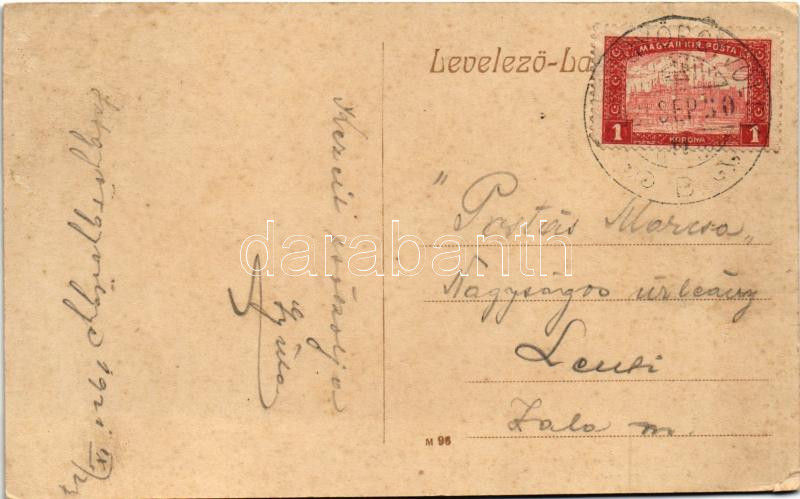 Levelező-La
MAGYAR KIR. POSTA
1 KORONA 1
SEP 30
B
"Postás Marcsa"
Nagyságos úrleány
Lenti
Zala m.
Kezeit csókolja
Gyula
1921. IX/
M 96
darabanth